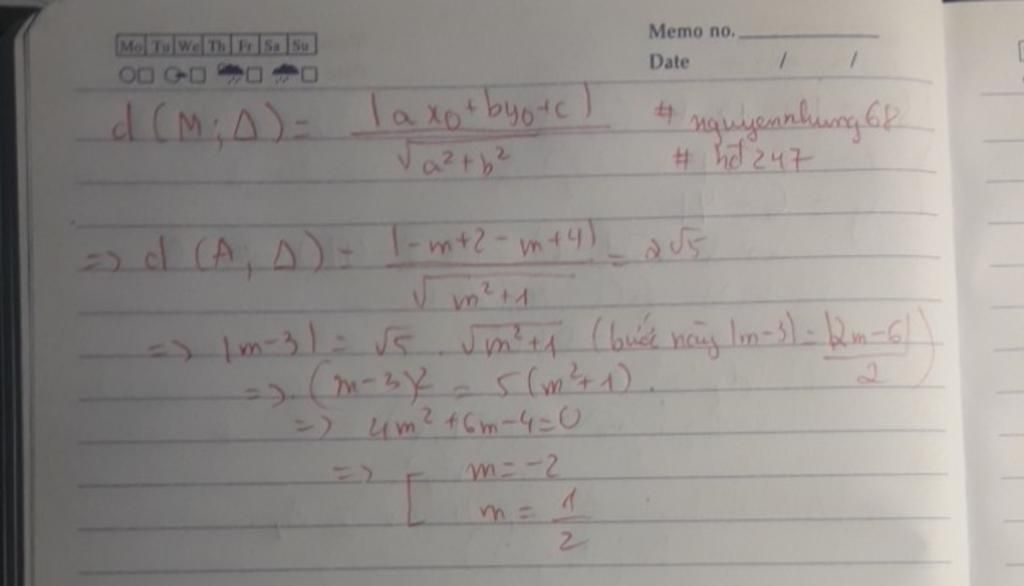 Mo Tu We Th Fr Sa Su
Memo no.
Date / /
d (M; Δ) = |ax₀ + by₀ + c| / √(a² + b²)
# nguyennhung68
# hđ 247
=> d (A, Δ) = |-m+2 - m+4| / √(m²+1) = 2√5
=> |m-3| = √5 . √(m²+1) (bước này |m-3| = |2m-6| / 2)
=> (m-3)² = 5(m²+1).
=> 4m² + 6m - 4 = 0
=> [ m = -2
m = 1/2